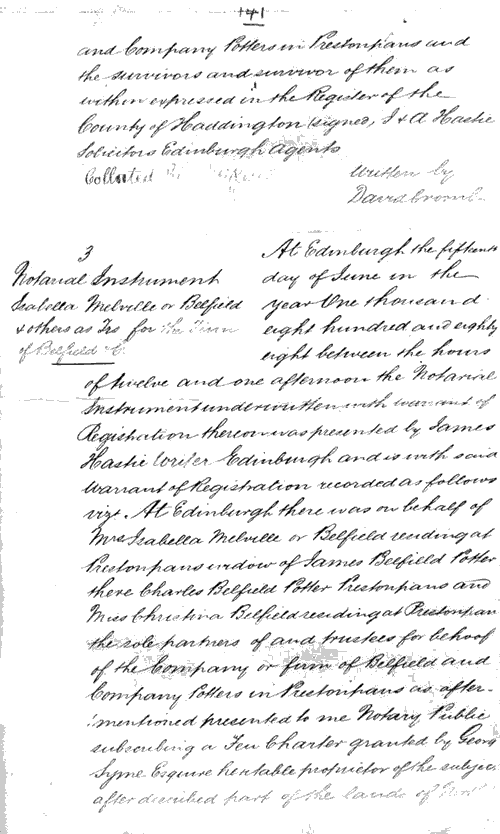 141
and Company Potters in Prestonpans and
the survivors and survivor of them as
within expressed in the Register of the
County of Haddington (signed) J & A Hastie
Solicitors Edinburgh Agents
Collated
Written by
David
3
Notarial Instrument
Isabella Melville or Belfield
& others as Trs for the Firm
of Belfield & C.
At Edinburgh the fifteenth
day of June in the
year One thousand
eight hundred and eighty
eight between the hours
of twelve and one afternoon the Notarial
Instrument underwritten with warrant of
Registration thereon was presented by James
Hastie Writer Edinburgh and is with said
Warrant of Registration recorded as follows
vizt. At Edinburgh there was on behalf of
Mrs Isabella Melville or Belfield residing at
Prestonpans widow of James Belfield Potter
there Charles Belfield Potter Prestonpans and
Miss Christina Belfield residing at Prestonpan
the sole partners of and trustees for behoof
of the Company or firm of Belfield and
Company Potters in Prestonpans as after-
mentioned presented to me Notary Public
subscribing a Feu Charter granted by Georg
Syme Esquire heritable proprietor of the subjec
after described part of the lands of